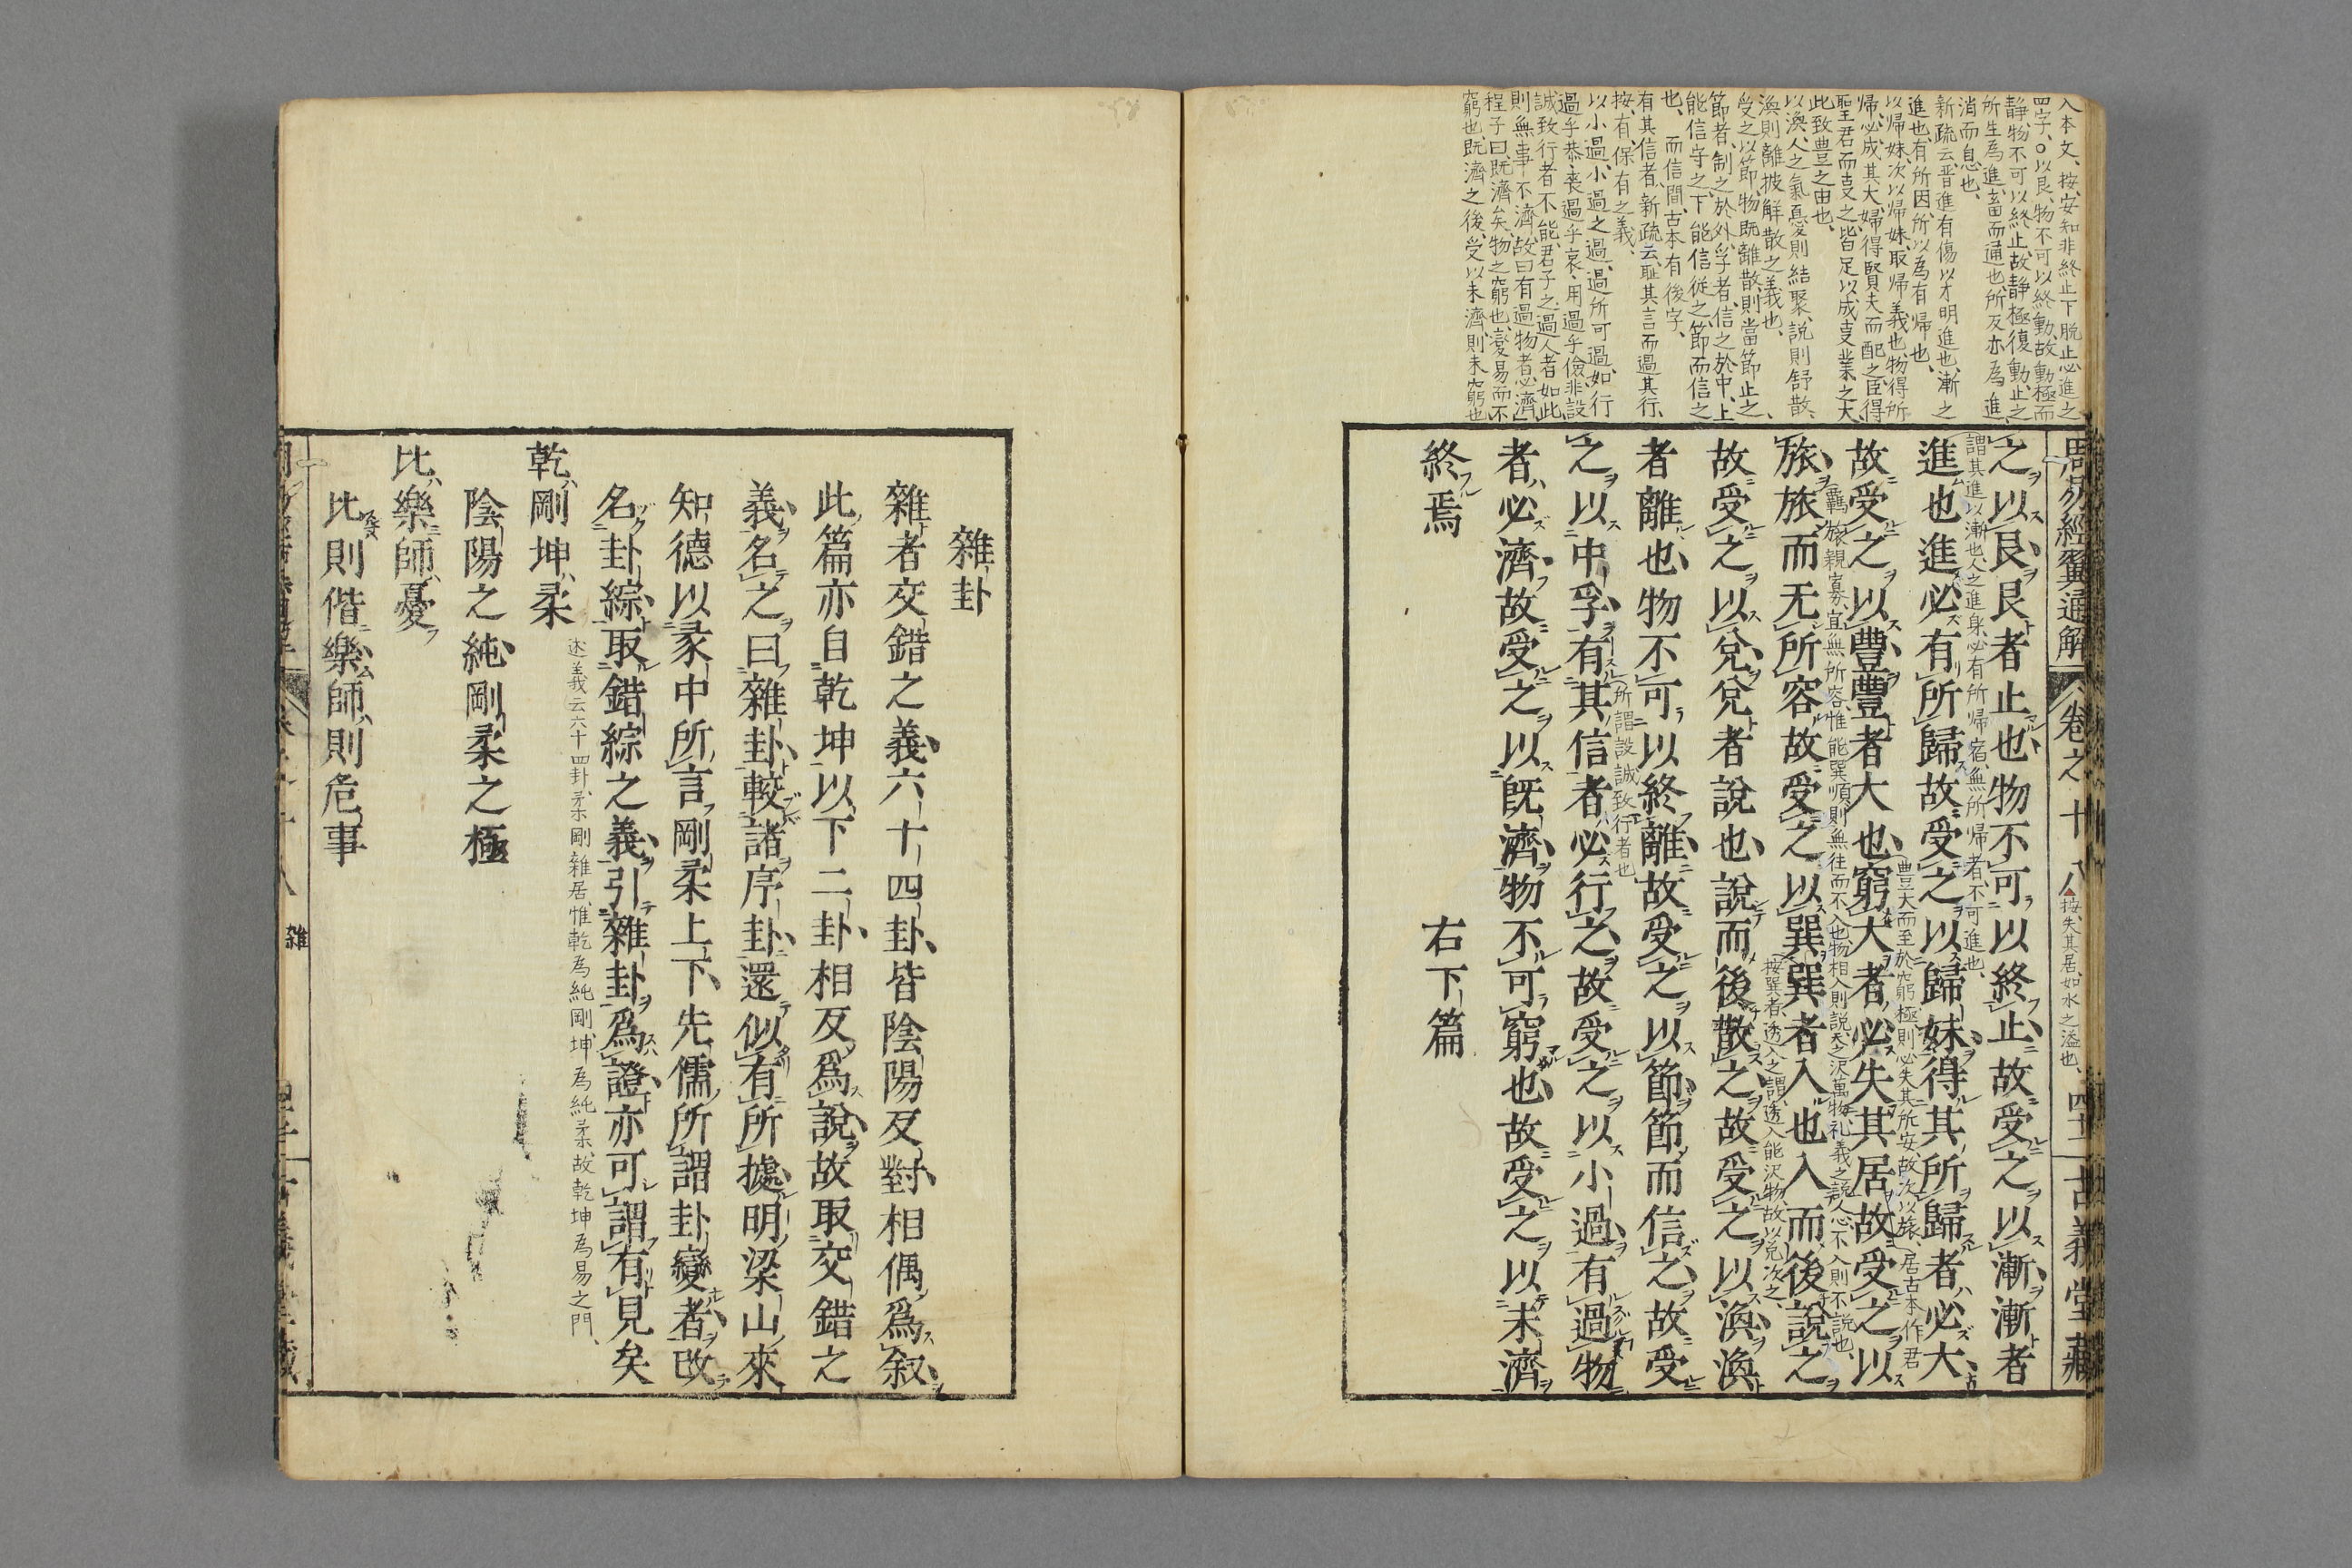 入本文、按、安知非終止下脱止必進之
四字、○以艮、物不可以終動、故動極而
静、物不可以終止、故静極復動、止之
所生為進、畜而通也、所反亦為進、
消而息也、
新疏云、晋進有傷以才明進也、漸之
進也、有所因、所以為有帰也、
以帰妹、次以帰妹、取帰義也、物得所
帰、必成其大、婦得賢夫而配之、臣得
聖君而㕝之、皆足以成㕝業之大
此致豊之由也、
以渙、人之氣憂則結聚、説則舒散、
渙則離披解散之義也、
受之以節、物既離散、則當節止之、
節者、制之於外、孚者、信之於中、上
能信守之、下能信従之、節而信之
也、而信間、古本有後字、
有其信者、新疏云、耻其言而過其行、
按、有、保有之義、
以小過、小過之過、過所可過、如行
過乎恭、喪過乎哀、用過乎儉、非設
誠致行者不能、君子之過人者如此
則無事不濟、故曰有過物者必濟、
程子曰、既濟矣、物之窮也、変易而不
窮也、既濟之後、受以未濟、則未窮也
周易經翼通解 卷之十八 四十二 古義堂藏
按、失其居、如水之溢也、
之以艮艮者止也物不可以終止故受之以漸漸者
謂其進以漸也、人之進身、必有所帰宿、無所帰者、不可進也、
進也進必有所歸故受之以歸妹得其所歸者必大
故受之以豐豐者大也窮大者必失其居故受之以
豊大而至於窮極、則必失其所安、故次以旅、居古本作君
旅旅而无所容故受之以巽巽者入也入而後說之
羈旅親寡、宜無所容、惟能巽順、則無往而不入也、物相入則説、天之沢萬物、礼義之説人心、不入則不説也、
故受之以兌兌者說也說而後散之故受之以渙渙
按巽者、透入之謂、透入能沢物、故以兌次之、
者離也物不可以終離故受之以節節而信之故受
之以中孚有其信者必行之故受之以小過有過物
所謂設誠致行者也
者必濟故受之以既濟物不可窮也故受之以未濟
終焉 右下篇
雜卦
雜者交錯之義六十四卦皆陰陽反對相偶爲叙
此篇亦自乾坤以下二卦相反爲說故取交錯之
義名之曰雜卦較諸序卦還似有所據明梁山來
知德以彖中所言剛柔上下先儒所謂卦變者改
名卦綜取錯綜之義引雜卦爲證亦可謂有見矣
乾剛坤柔
述義云六十四卦、柔剛雜居、惟乾為純剛、坤為純柔、故乾坤為易之門、
陰陽之純剛柔之極
比樂師憂
比則偕樂師則危事
雜